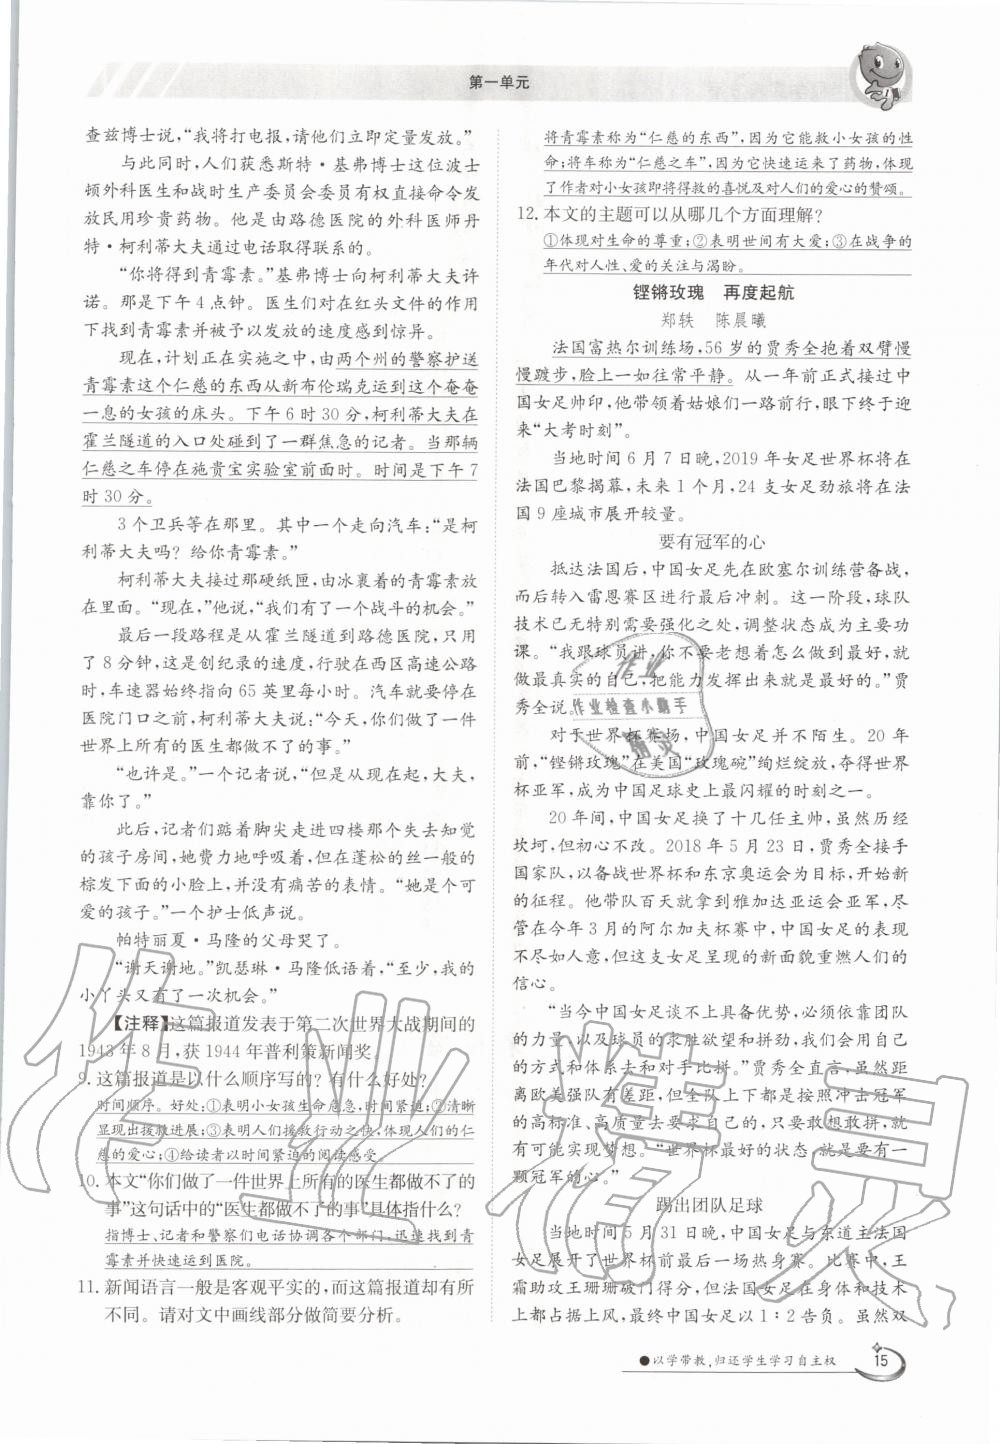 第一单元
查兹博士说,“我将打电报,请他们立即定量发放。”
与此同时,人们获悉斯特·基弗博士这位波士
顿外科医生和战时生产委员会委员有权直接命令发
放民用珍贵药物。他是由路德医院的外科医师丹
特·柯利蒂大夫通过电话取得联系的。
“你将得到青霉素。”基弗博士向柯利蒂大夫许
诺。那是下午4点钟。医生们对在红头文件的作用
下找到青霉素并被予以发放的速度感到惊异。
现在,计划正在实施之中,由两个州的警察护送
青霉素这个仁慈的东西从新布伦瑞克运到这个奄奄
一息的女孩的床头。下午6时30分,柯利蒂大夫在
霍兰隧道的入口处碰到了一群焦急的记者。当那辆
仁慈之车停在施贵宝实验室前面时。时间是下午7
时30分。
3个卫兵等在那里。其中一个走向汽车:“是柯
利蒂大夫吗?给你青霉素。”
柯利蒂大夫接过那硬纸匣,由冰裹着的青霉素放
在里面。“现在,”他说,“我们有了一个战斗的机会。”
最后一段路程是从霍兰隧道到路德医院,只用
了8分钟,这是创纪录的速度,行驶在西区高速公路
时,车速器始终指向65英里每小时。汽车就要停在
医院门口之前,柯利蒂大夫说:“今天,你们做了一件
世界上所有的医生都做不了的事。”
“也许是。”一个记者说,“但是从现在起,大夫,
靠你了。”
此后,记者们踮着脚尖走进四楼那个失去知觉
的孩子房间,她费力地呼吸着,但在蓬松的丝一般的
棕发下面的小脸上,并没有痛苦的表情。“她是个可
爱的孩子。”一个护士低声说。
帕特丽夏·马隆的父母哭了。
“谢天谢地。”凯瑟琳·马隆低语着,“至少,我的
小丫头又有了一次机会。”
【注释】这篇报道发表于第二次世界大战期间的
1943年8月,获1944年普利策新闻奖。
9. 这篇报道是以什么顺序写的?有什么好处?
时间顺序。好处:①表明小女孩生命危急,时间紧迫;②清晰
显现出拨救进展;③表明人们援救行动之快,体现人们的仁
慈的爱心;④给读者以时间紧迫的阅读感受。
10. 本文“你们做了一件世界上所有的医生都做不了的
事”这句话中的“医生都做不了的事”具体指什么?
指博士、记者和警察们电话协调各个部门,迅速找到青
霉素并快速运到医院。
11. 新闻语言一般是客观平实的,而这篇报道却有所
不同。请对文中画线部分做简要分析。
将青霉素称为“仁慈的东西”,因为它能救小女孩的性
命;将车称为“仁慈之车”,因为它快速运来了药物,体现
了作者对小女孩即将得救的喜悦及对人们的爱心的赞颂。
12. 本文的主题可以从哪几个方面理解?
①体现对生命的尊重;②表明世间有大爱;③在战争的
年代对人性、爱的关注与渴盼。
铿锵玫瑰 再度起航
郑轶 陈晨曦
法国富热尔训练场,56岁的贾秀全抱着双臂慢
慢踱步,脸上一如往常平静。从一年前正式接过中
国女足帅印,他带领着姑娘们一路前行,眼下终于迎
来“大考时刻”。
当地时间6月7日晚,2019年女足世界杯将在
法国巴黎揭幕,未来1个月,24支女足劲旅将在法
国9座城市展开较量。
要有冠军的心
抵达法国后,中国女足先在欧塞尔训练营备战,
而后转入雷恩赛区进行最后冲刺。这一阶段,球队
技术已无特别需要强化之处,调整状态成为主要功
课。“我跟球员讲,你不要老想着怎么做到最好,就
做最真实的自己,把能力发挥出来就是最好的。”贾
秀全说。
作业
作业检查小助手
精灵
对于世界杯赛场,中国女足并不陌生。20年
前,“铿锵玫瑰”在美国“玫瑰碗”绚烂绽放,夺得世界
杯亚军,成为中国足球史上最闪耀的时刻之一。
20年间,中国女足换了十几任主帅,虽然历经
坎坷,但初心不改。2018年5月23日,贾秀全接手
国家队,以备战世界杯和东京奥运会为目标,开始新
的征程。他带队百天就拿到雅加达亚运会亚军,尽
管在今年3月的阿尔加夫杯赛中,中国女足的表现
不尽如人意,但这支女足呈现的新面貌重燃人们的
信心。
“当今中国女足谈不上具备优势,必须依靠团队
的力量,以及球员的求胜欲望和拼劲,我们会用自己
的方式和体系去和对手比拼。”贾秀全直言,虽然距
离欧美强队有差距,但全队上下都会按照冲击冠军
的高标准、高质量去要求自己的,只要敢想敢拼,就
有可能实现梦想。“世界杯最好的状态,就是要有一
颗冠军的心。”
踢出团队足球
当地时间5月31日晚,中国女足与东道主法国
女足展开了世界杯前最后一场热身赛。比赛中,王
霜助攻王珊珊破门得分,但法国女足在身体和技术
上都占据上风,最终中国女足以1∶2告负。虽然双
●以学带教,归还学生学习自主权
15
作业精灵